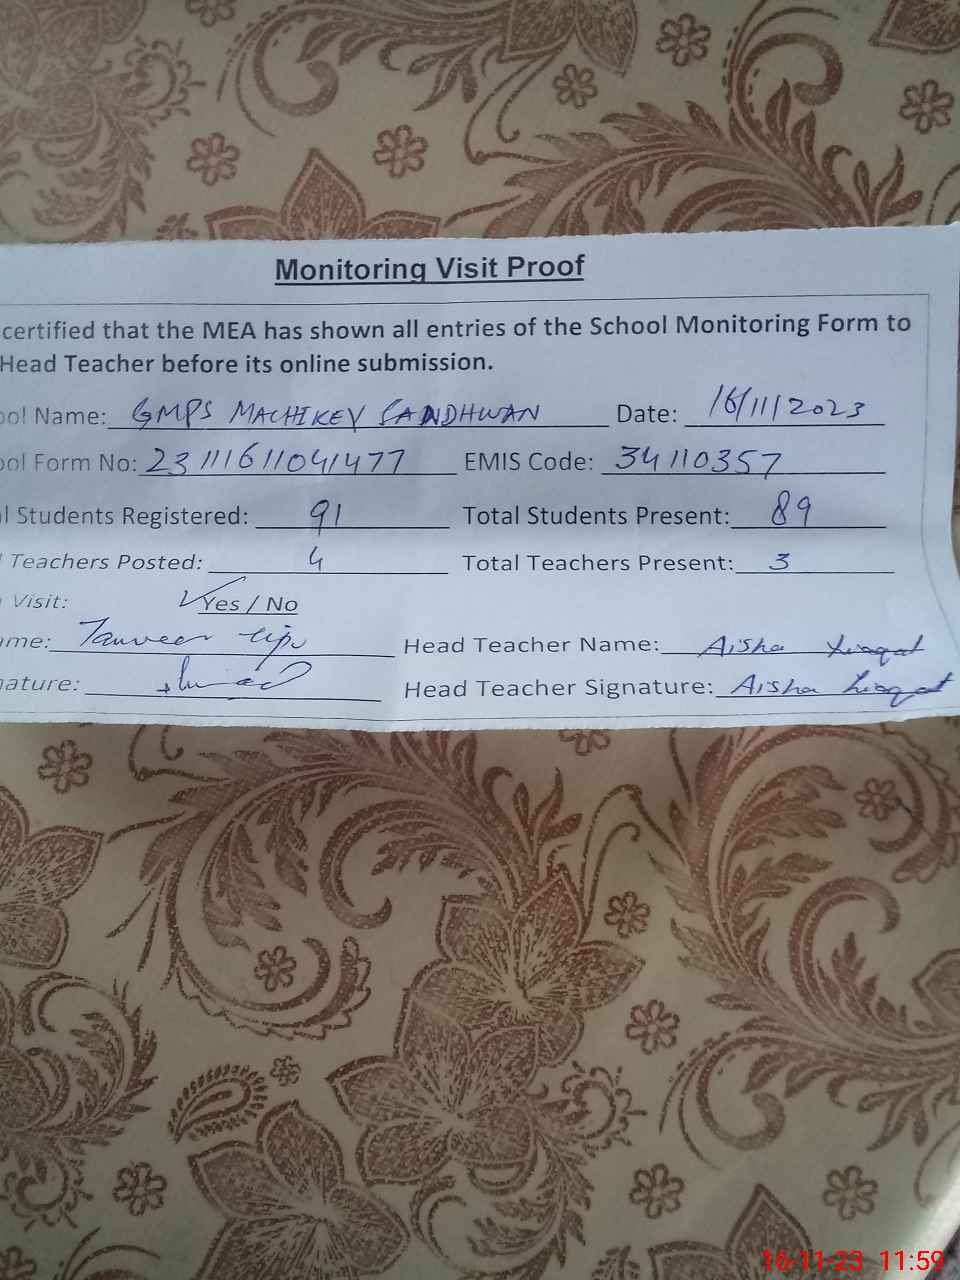 Monitoring Visit Proof
certified that the MEA has shown all entries of the School Monitoring Form to
Head Teacher before its online submission.
ool Name: GMPS MACHIKEY SANDHWAN Date: 16/11/2023
ool Form No: 23111611041477 EMIS Code: 34110357
l Students Registered: 91 Total Students Present: 89
Teachers Posted: 4 Total Teachers Present: 3
Visit: Yes / No
ame: Tanveer tipu Head Teacher Name: Aisha Liaqat
nature: Head Teacher Signature: Aisha Liaqat
16-11-23 11:59